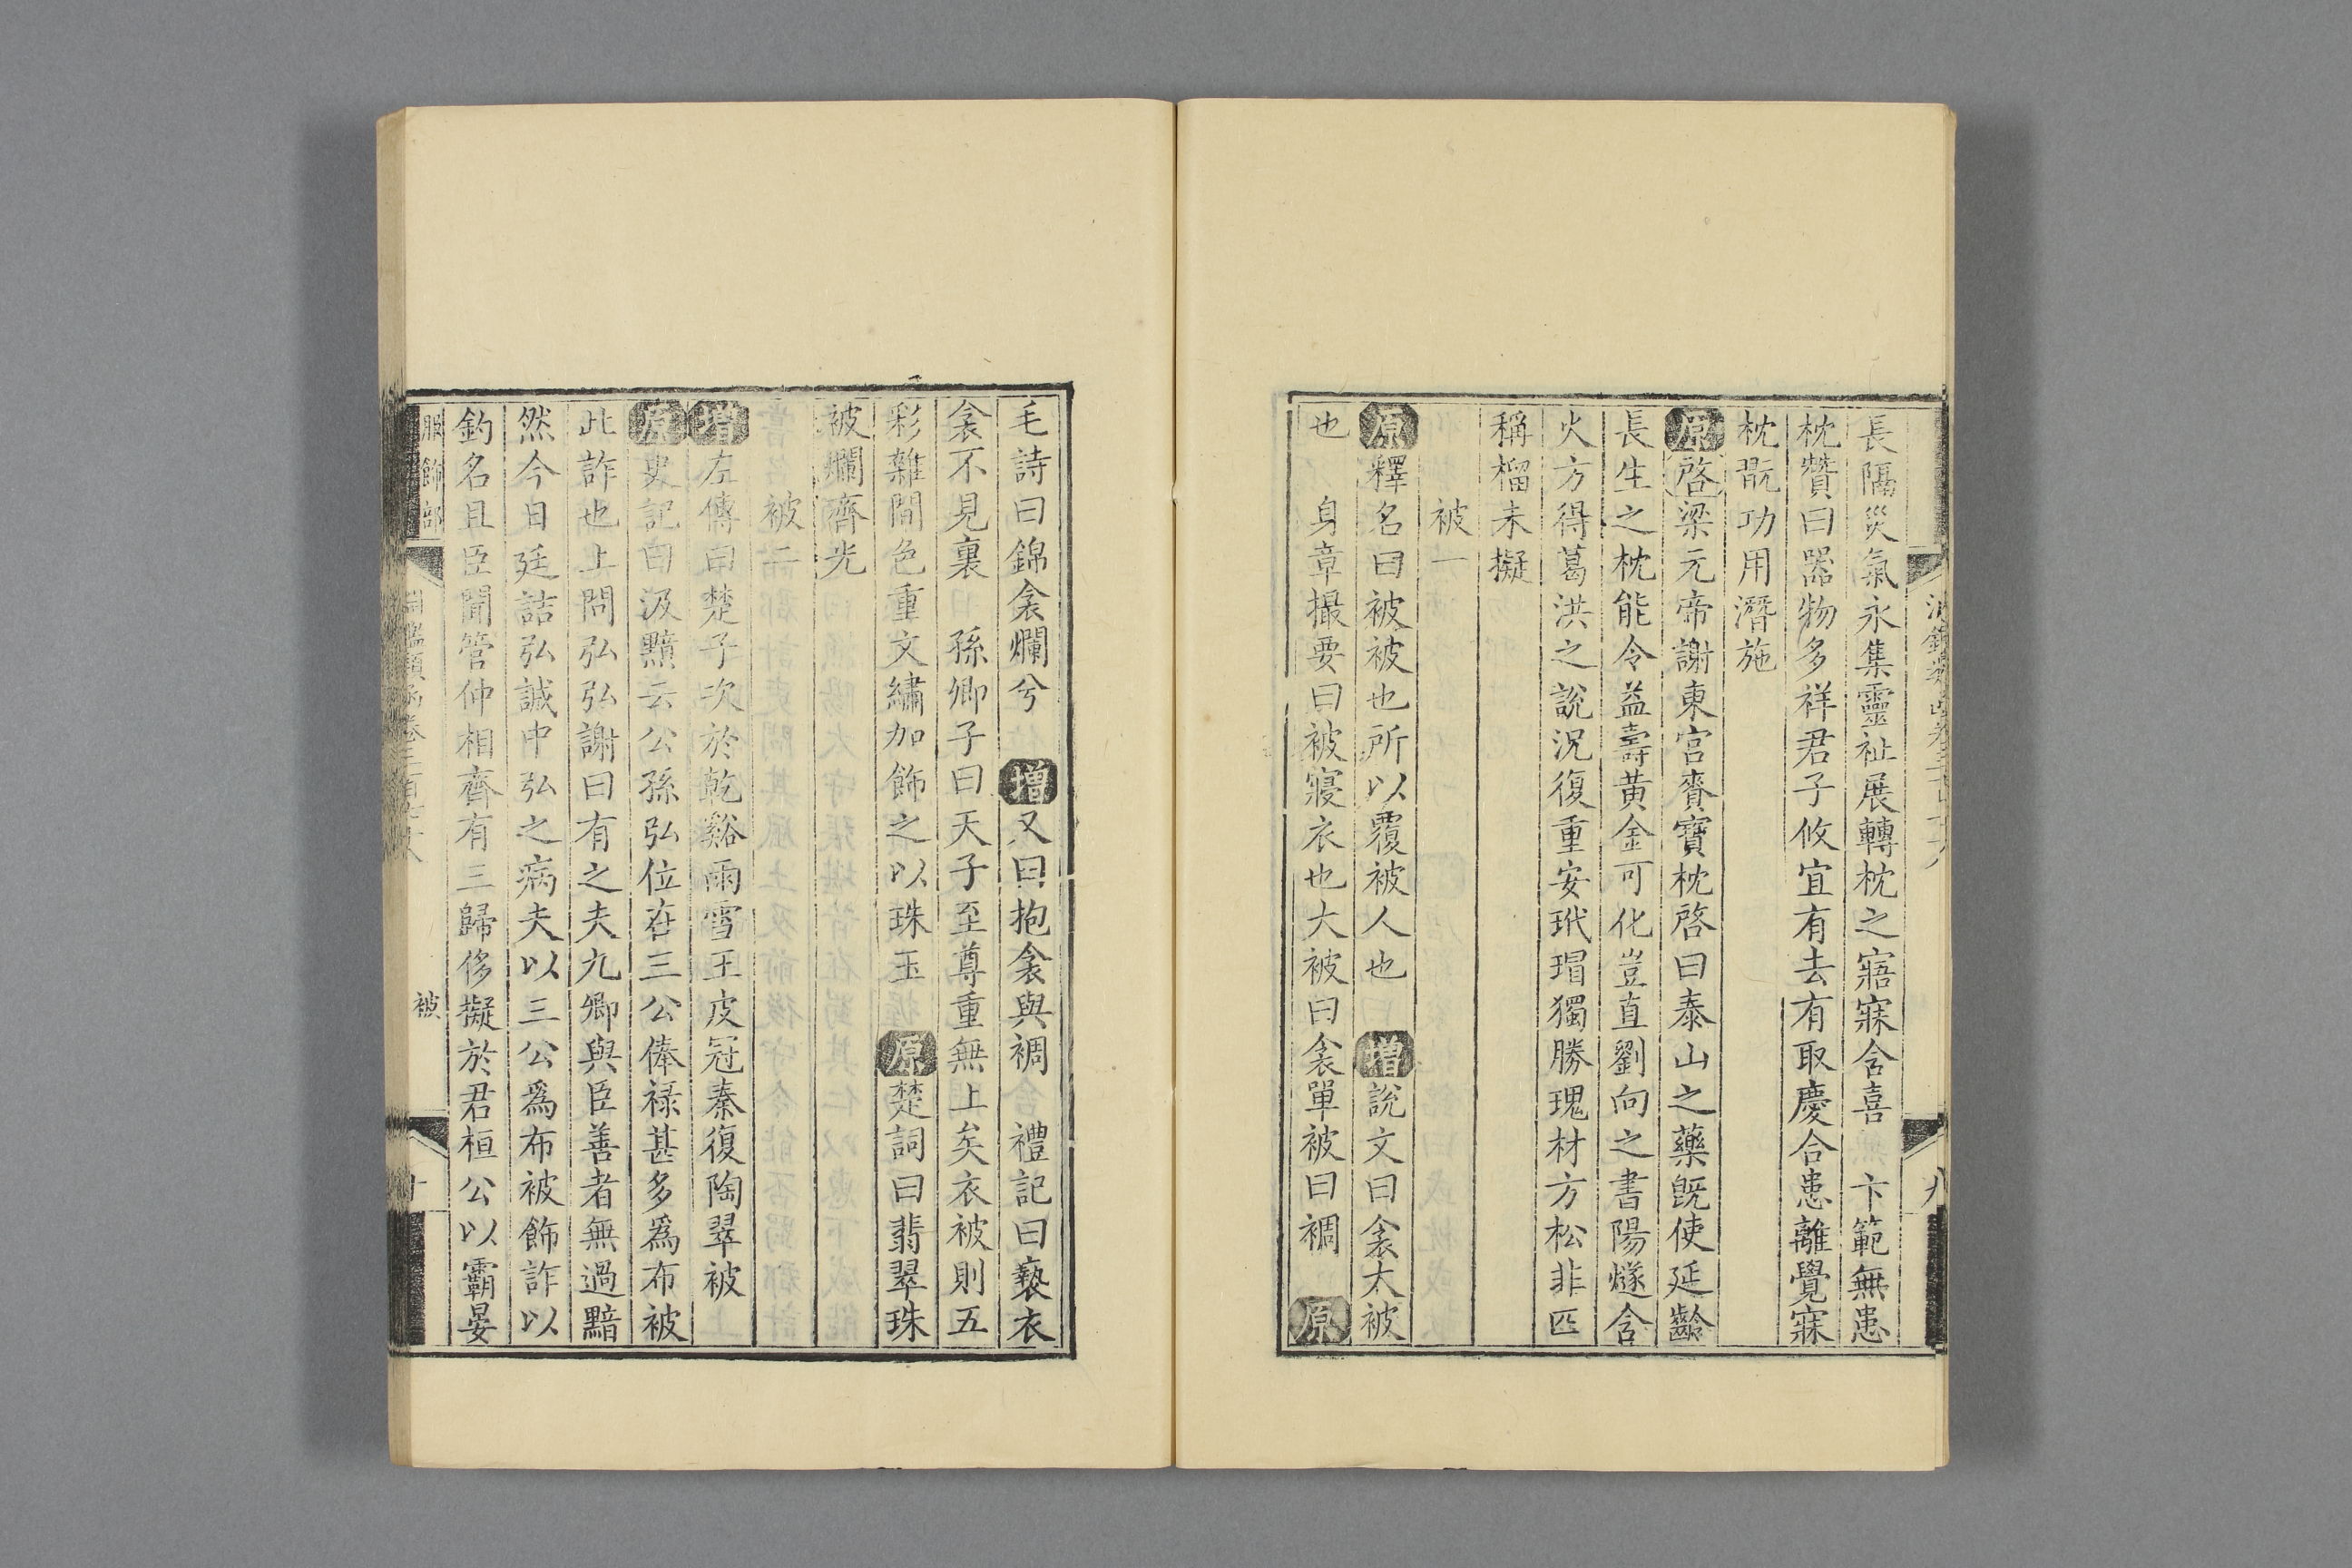 長隔災氣永集靈祉展轉枕之寤寐含喜　卞範無患
枕贊曰器物多祥君子攸宜有去有取慶合患離覺寐
枕翫功用潛施
原啓梁元帝謝東宮賚寶枕啓曰泰山之藥旣使延齡
長生之枕能令益壽黃金可化豈直劉向之書陽燧含
火方得葛洪之說況復重安玳瑁獨勝瑰材方松非匹
稱榴未擬
被一
原釋名曰被被也所以覆被人也　增說文曰衾大被
也　身章撮要曰被寢衣也大被曰衾單被曰裯　原
毛詩曰錦衾爛兮　增又曰抱衾與裯　禮記曰褻衣
衾不見裏　孫卿子曰天子至尊重無上矣衣被則五
彩雜間色重文繡加飾之以珠玉　原楚詞曰翡翠珠
被爛齊光
被二
增左傳曰楚子次於乾谿雨雪王皮冠秦復陶翠被
原史記曰汲黯云公孫弘位在三公俸祿甚多爲布被
此詐也上問弘弘謝曰有之夫九卿與臣善者無過黯
然今日廷詰弘誠中弘之病夫以三公爲布被飾詐以
釣名且臣聞管仲相齊有三歸侈擬於君桓公以霸晏
服飾部
淵鑑類函卷三百七十八
被
十